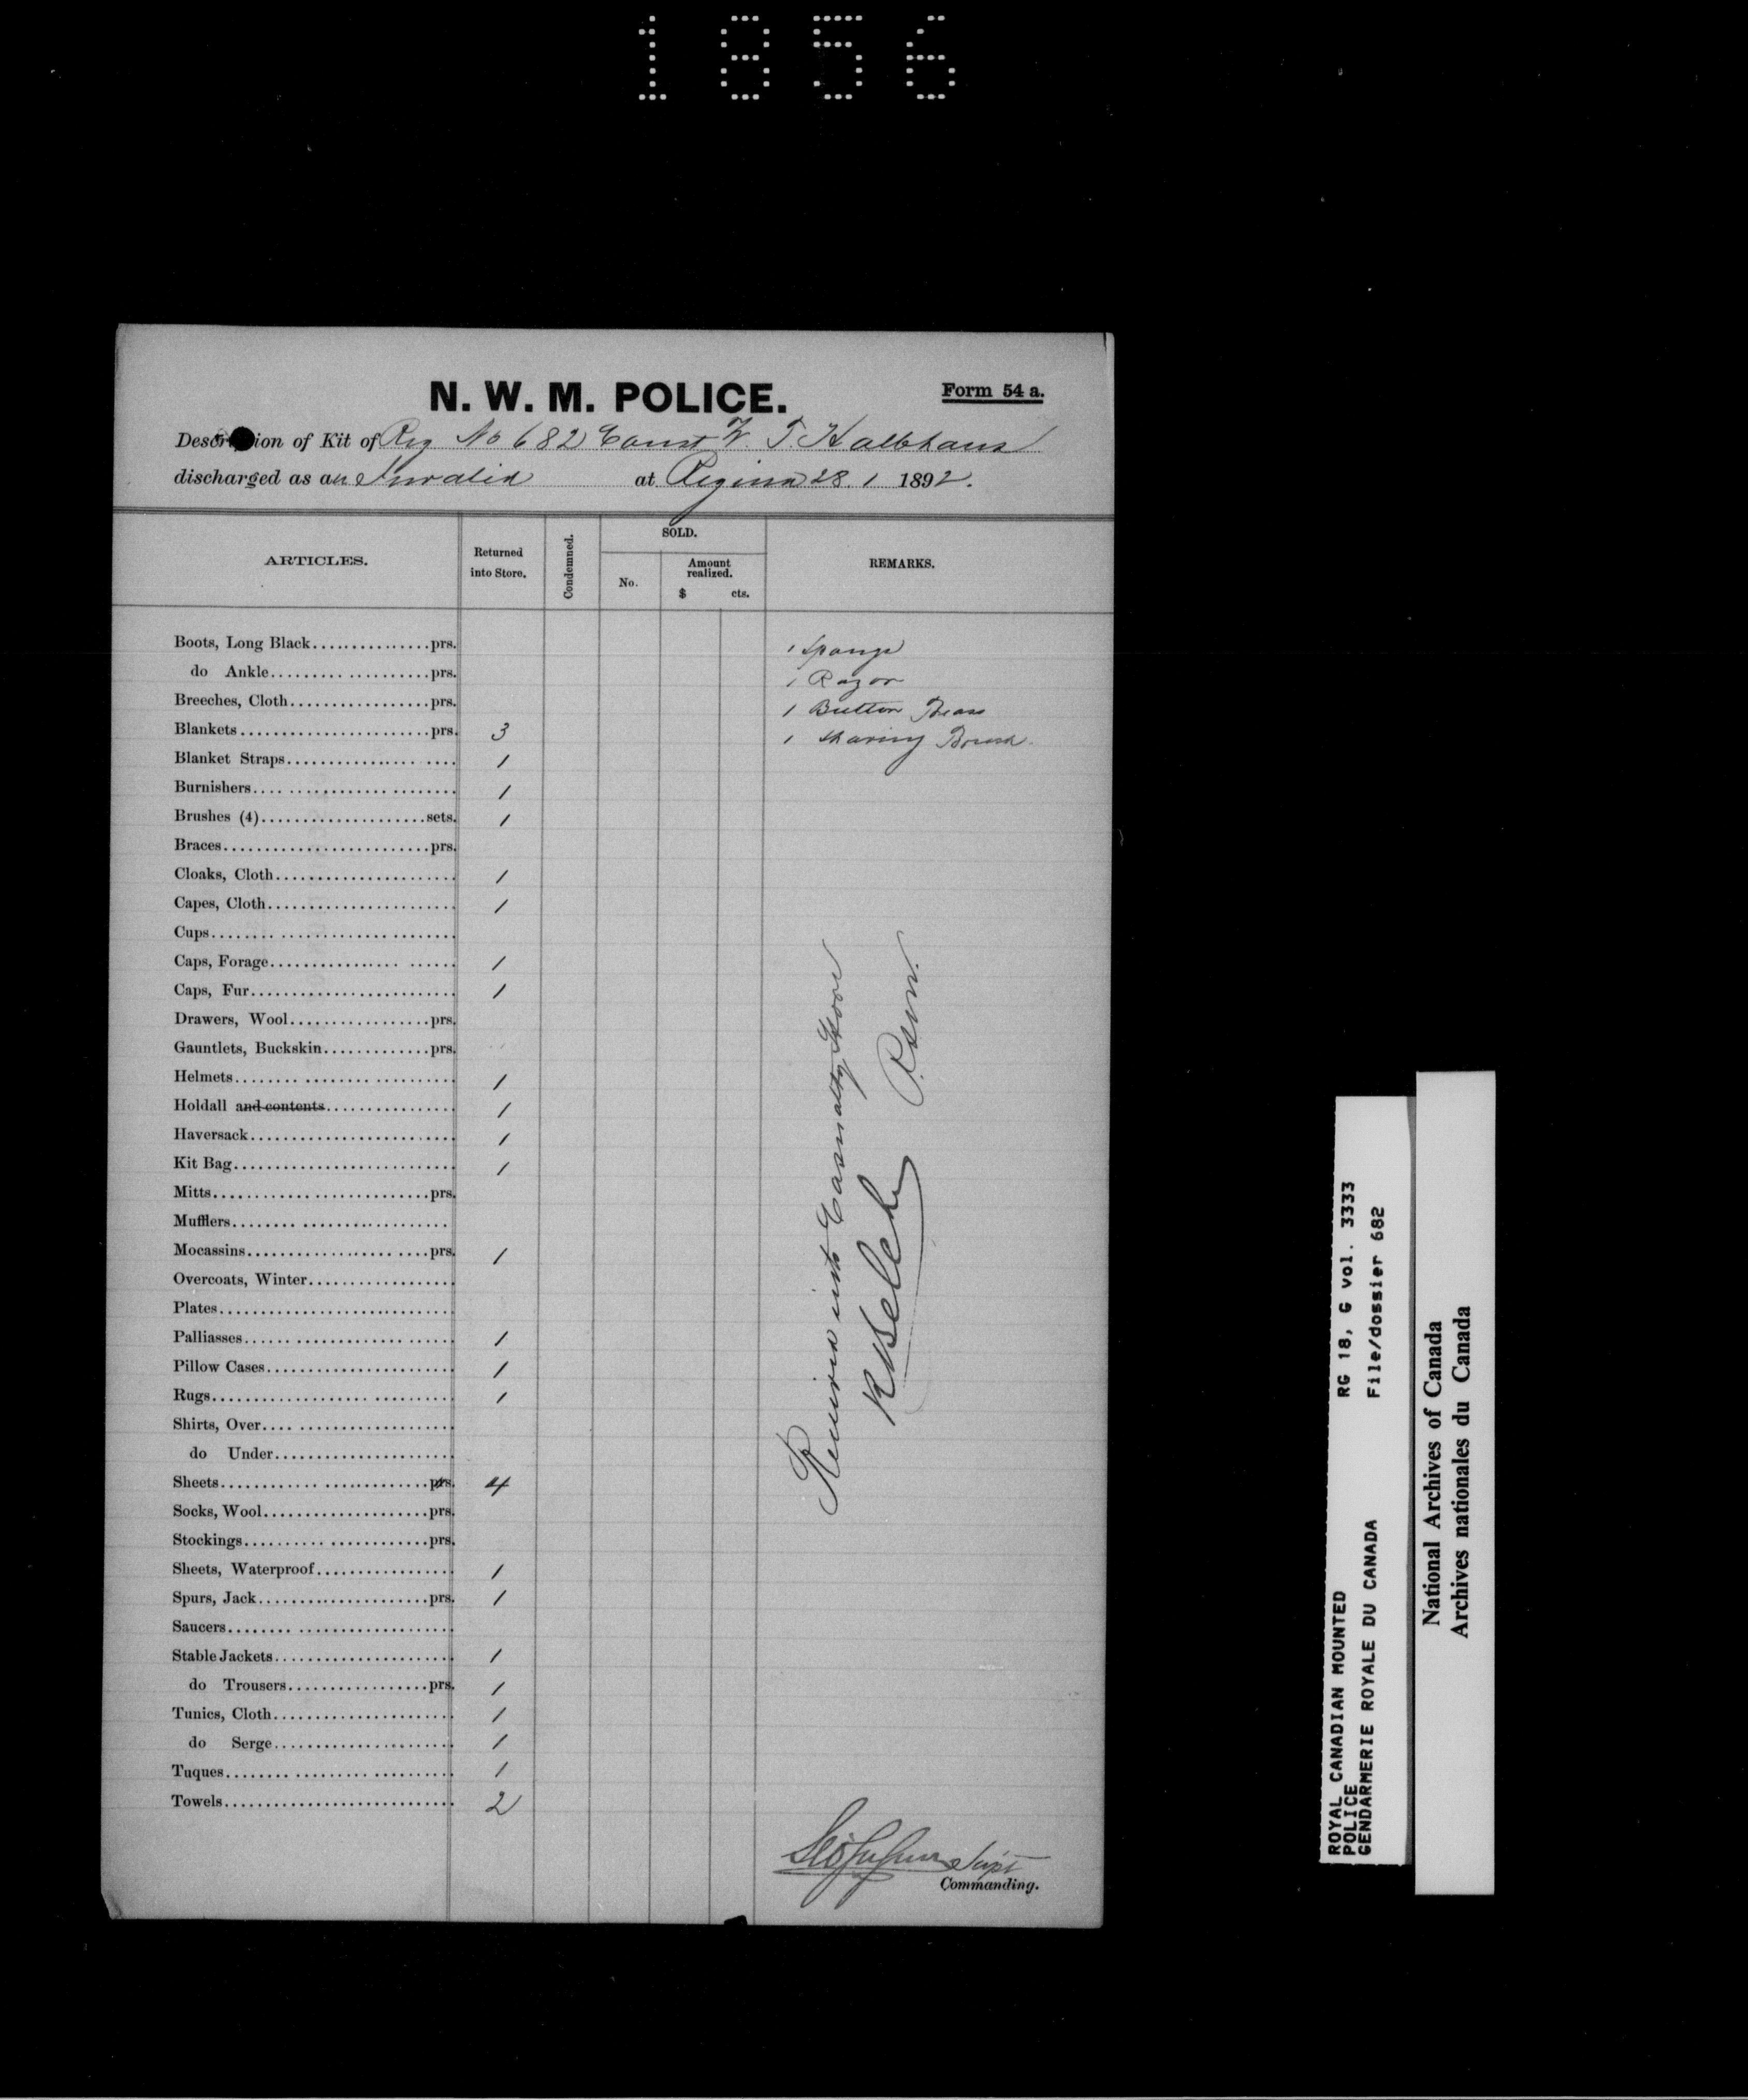 1856
N. W. M. POLICE.
Form 54 a.
Descr ion of Kit of Reg No 682 Const W. T. Halbhaus
discharged as an Invalid at Regina 28.1 1892.
ARTICLES.
Returned into Store.
Condemned.
SOLD.
No.
Amount realized.
$ cts.
REMARKS.
Boots, Long Black prs. 1 Sponge
do Ankle prs. 1 Razor
Breeches, Cloth prs. 1 Button Brass
Blankets prs. 3 1 Shaving Brush
Blanket Straps 1
Burnishers 1
Brushes (4) sets. 1
Braces prs.
Cloaks, Cloth 1
Capes, Cloth 1
Cups
Caps, Forage 1
Caps, Fur 1
Drawers, Wool prs.
Gauntlets, Buckskin prs.
Helmets 1
Holdall and contents 1
Haversack 1
Kit Bag 1
Mitts prs.
Mufflers
Mocassins prs. 1
Overcoats, Winter
Plates
Palliasses 1
Pillow Cases 1
Rugs 1
Shirts, Over
do Under
Sheets prs. 4
Socks, Wool prs.
Stockings prs.
Sheets, Waterproof 1
Spurs, Jack prs. 1
Saucers
Stable Jackets 1
do Trousers prs. 1
Tunics, Cloth 1
do Serge 1
Tuques 1
Towels 2
Received into Casualty Store
Supt
Commanding.
ROYAL CANADIAN MOUNTED
POLICE
GENDARMERIE ROYALE DU CANADA
RG 18, G vol. 3333
File/dossier 682
National Archives of Canada
Archives nationales du Canada